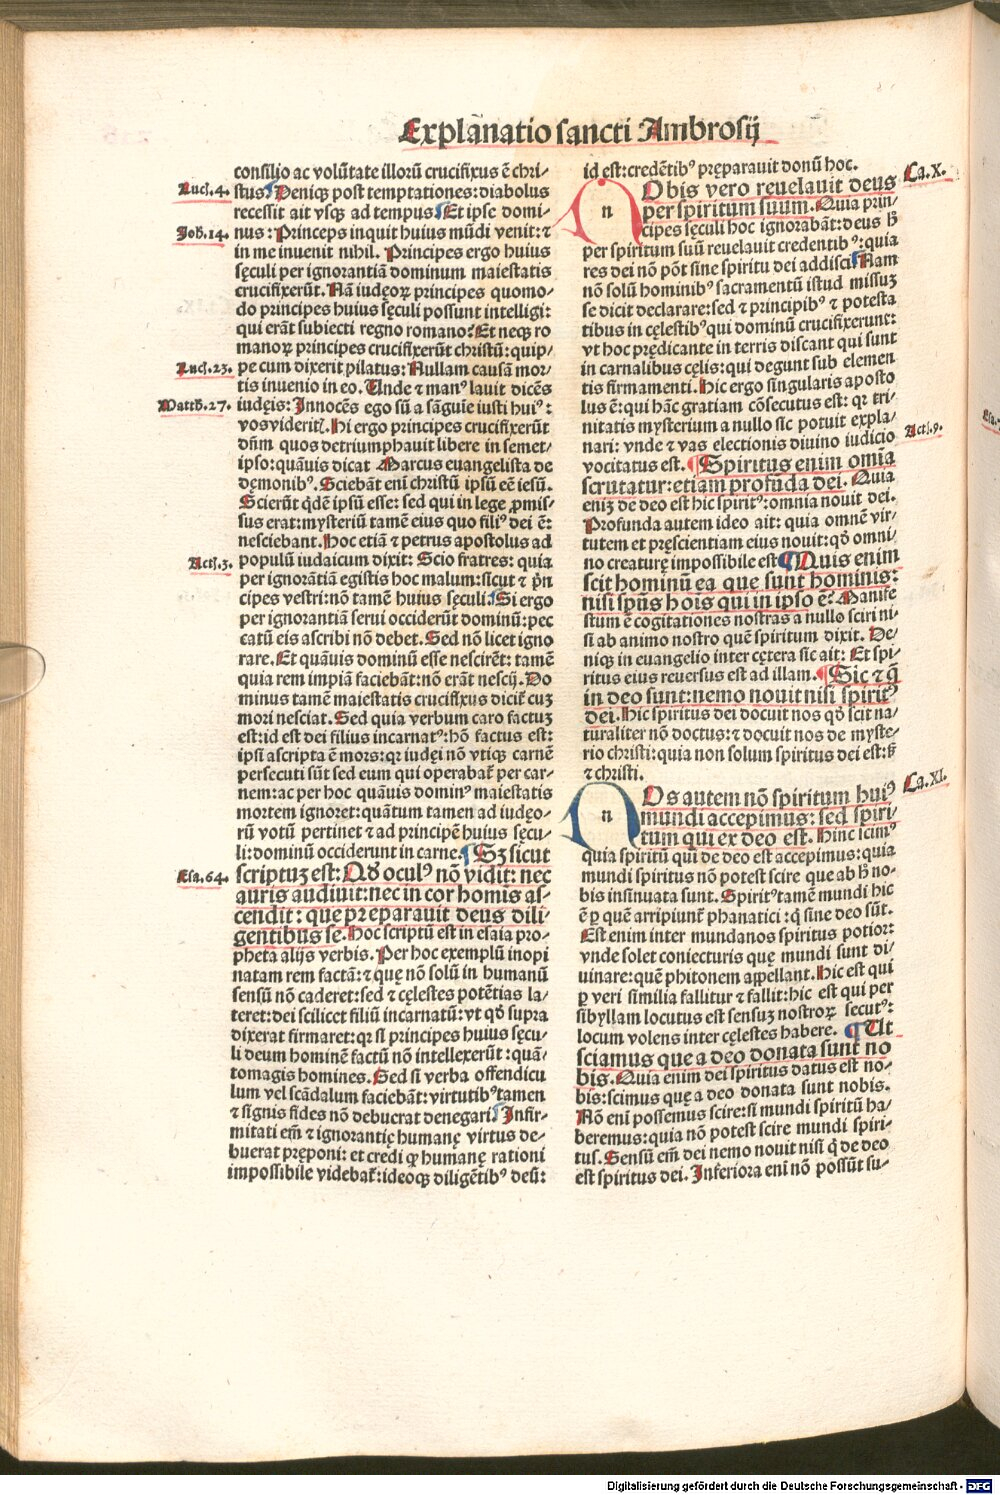 Explanatio sancti Ambrosij
consilio ac volūtate illorū crucifixus ē chri-
Luce.4.
stus. Deniqꝫ post temptationes: diabolus
recessit ait vsqꝫ ad tempus. Et ipse domi-
Joh.14.
nus: Princeps inquit huius mūdi venit: ⁊
in me inuenit nihil. Princip̄es ergo huius
sęculi per ignorantiā dominum maiestatis
crucifixerūt. Nā iudęoꝝ principes quomo-
do principes huius sęculi possunt intelligi:
qui erāt subiecti regno romano? Et neqꝫ ro
manoꝝ principes crucifixerūt christū: quip-
Luce.23.
pe cum dixerit pilatus: Nullam causā mor-
tis inuenio in eo. Unde ⁊ manꝰ lauit dicēs
Matth.27.
iudęis: Innocēs ego sū a sāguie iusti huiꝰ:
vos videritꝭ. Hi ergo principes crucifixerūt
dn̄m quos detriumphauit libere in semet-
ipso: quāuis dicat Marcus euangelista de
dęmonibꝰ. Sciebāt eni christū ipsū eē iesū.
Scierūt qͥdē ipsū esse: sed qui in lege ꝓmis-
sus erat: mysteriū tamē eius quo filiꝰ dei ē:
nesciebant. Hoc etiā ⁊ petrus apostolus ad
Act.3.
populū iudaicum dixit: Scio fratres: quia
per ignorātiā egistis hoc malum: sicut ⁊ p̄n
cipes vestri: nō tamē huius sęculi. Si ergo
per ignorantiā serui occiderūt dominū: pec
catū eis ascribi nō debet. Sed nō licet igno
rare. Et quāuis dominū esse nescirēt: tamē
quia rem impiā faciebāt: nō erāt nescij. Do
minus tamē maiestatis crucifixus dicit̄ cuꝫ
mori nesciat. Sed quia verbum caro factuꝫ
est: id est dei filius incarnatꝰ: hō factus est:
ipsi ascripta ē mors: qꝛ iudęi nō vtiqꝫ carnē
persecuti sūt sed eum qui operabat̄ per car-
nem: ac per hoc quāuis dominꝰ maiestatis
mortem ignoret: quātum tamen ad iudęo-
rū votū pertinet ⁊ ad principē huius sęcu-
li: dominū occiderunt in carne. ¶ Sꝫ sicut
Esa.64.
scriptuꝫ est: Qͦd oculꝰ nō vidit: nec
auris audiuit: nec in cor homīs as-
cendit: que preparauit deus dili-
gentibus se. Hoc scriptū est in esaia pro-
pheta alijs verbis. Per hoc exemplū inopi
natam rem factā: ⁊ quę nō solū in humanū
sensū nō caderet: sed ⁊ cęlestes potētias la-
teret: dei scilicet filiū incarnatū: vt qͦd supra
dixerat firmaret: qꝛ si principes huius sęcu-
li deum hominē factū nō intellexerūt: quā-
tomagis homines. Sed si verba offendicu
lum vel scādalum faciebāt: virtutibꝰ tamen
⁊ signis fides nō debuerat denegari. Infir-
mitati em̄ ⁊ ignorantię humanę virtus de-
buerat pręponi: et credi qꝙ humanę rationi
impossibile videbat̄: ideoqꝫ diligētibꝰ deū:
id est: credētibꝰ pręparauit donū hoc.
Ca.X.
n
Obis vero reuelauit deus
per spiritum suum. Quia prin-
cipes sęculi hoc ignorabāt: deus h̄
per spiritum suū reuelauit credentibꝰ: quia
res dei nō pōt sine spiritu dei addisci. Nam
nō solū hominibꝰ sacramentū istud missuꝫ
se dicit declarare: sed ⁊ principibꝰ ⁊ potesta
tibus in cęlestibꝰ qui dominū crucifixerunt:
vt hoc prędicante in terris discant qui sunt
in carnalibus cęlis: qui degunt sub elemen
tis firmamenti. Hic ergo singularis aposto
lus ē: qui hāc gratiam cōsecutus est: qꝛ tri-
nitatis mysterium a nullo sic potuit expla-
Act.9.
nari: vnde ⁊ vas electionis diuino iudicio
vocitatus est. ¶ Spiritus enim omīa
scrutatur: etiam profūda dei. Quia
enīꝫ de deo est hic spiritꝰ: omnia nouit dei.
Profunda autem ideo ait: quia omnē vir-
tutem et pręscientiam eius nouit: qͦd omni-
no creaturę impossibile est. ¶ Quis enim
scit hominū ea que sunt hominis:
nisi sp̄us hoīs qui in ipso ē? Manife
stum ē cogitationes nostras a nullo sciri ni-
si ab animo nostro quē spiritum dixit. De-
niqꝫ in euangelio inter cętera sic ait: Et spi-
ritus eius reuersus est ad illam. ¶ Sic ⁊ q̄
in deo sunt: nemo nouit nisi spiritꝰ
dei. Hic spiritus dei docuit nos qͦd scit na-
turaliter nō doctus: ⁊ docuit nos de myste-
rio christi: quia non solum spiritus dei est: s̄
⁊ christi.
Ca.XI.
n
Os autem nō spiritum huiꝰ
mundi accepimus: sed spiri-
tum qui ex deo est. Hinc icimꝰ
quia spiritū qui de deo est accepimus: quia
mundi spiritus nō potest scire que ab h̄ no-
bis insinuata sunt. Spiritꝰ tamē mundi hic
ē ꝑ quē arripiunt̄ phanatici: qͥ sine deo sūt.
Est enim inter mundanos spiritus potior:
vnde solet coniecturis quę mundi sunt di-
uinare: quē phitonem appellant. Hic est qui
ꝑ veri similia fallitur ⁊ fallit: hic est qui per
sibyllam locutus est sensuꝫ nostroꝝ secutꝰ:
locum volens inter cęlestes habere. ¶ Ut
sciamus que a deo donata sunt no
bis. Quia enim dei spiritus datus est no-
bis: scimus quę a deo donata sunt nobis.
Nō eni possemus scire: si mundi spiritū ha-
beremus: quia nō potest scire mundi spiri-
tus. Sensū em̄ dei nemo nouit nisi qͥ de deo
est spiritus dei. Inferiora eni nō possūt su-
Digitalisierung gefördert durch die Deutsche Forschungsgemeinschaft - DFG